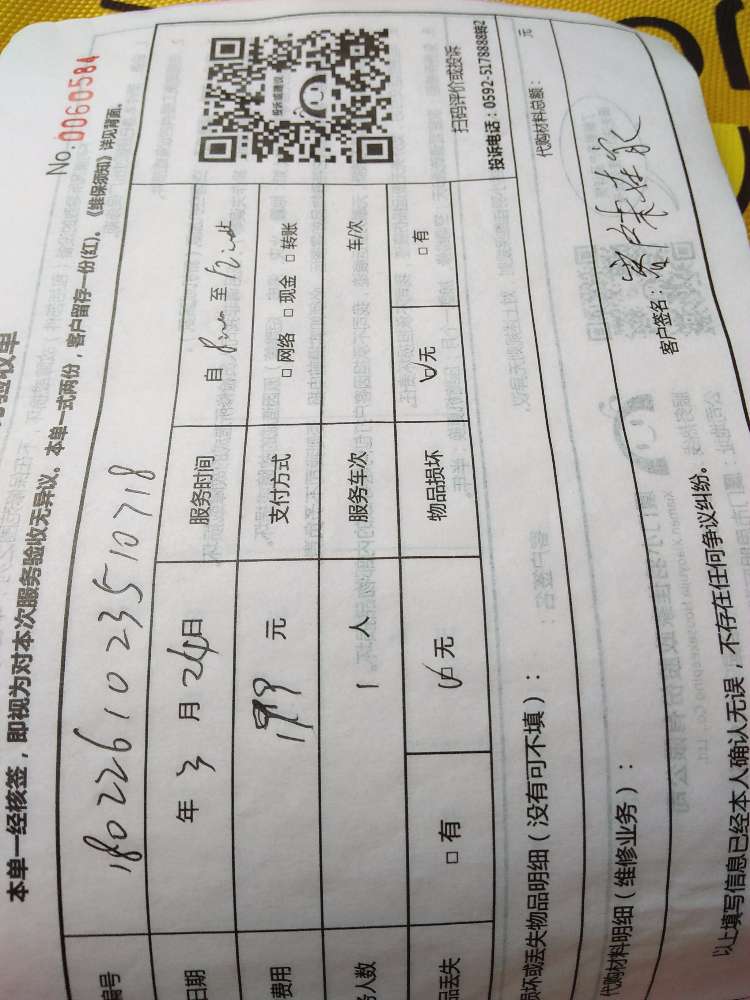 验收单
No. 0060584
本单一经核签，即视为对本次服务验收无异议。本单一式两份，客户留存一份(红)。《维保须知》详见背面。
编号 1802261023510718
日期 年 3 月 24 日 服务时间 自 至
费用 199 元 支付方式 □ 网络 □ 现金 □ 转账
务人数 1 人 服务车次 车/次
品丢失 □ 有 ☑ 无 物品损坏 ☑ 无 □ 有
投诉或建议
扫码评价或投诉
投诉电话：0592-5178888转2
损坏或丢失物品明细（没有可不填）：
代购材料明细（维修业务）：
代购材料总额： 元
以上填写信息已经本人确认无误，不存在任何争议纠纷。
客户签名：客户未在家